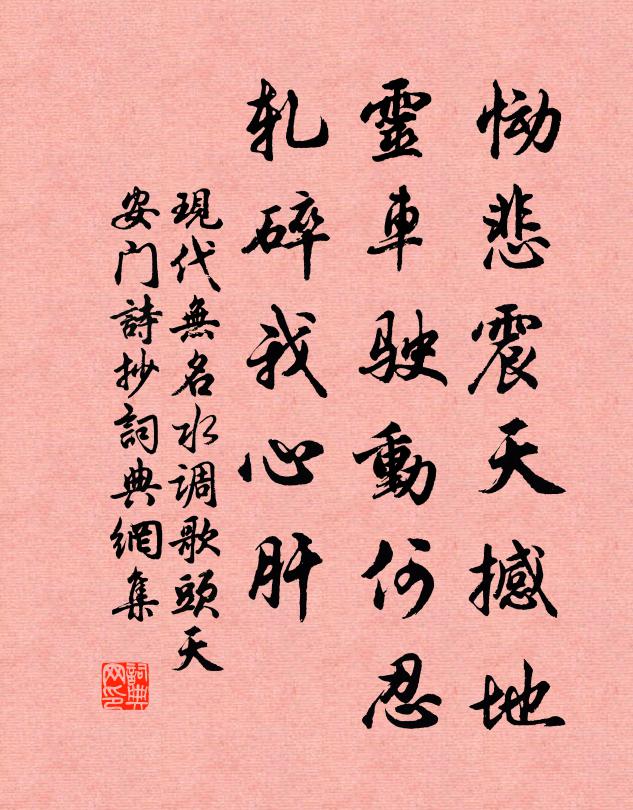 恸悲震天撼地
靈車駛動何忍
軋碎我心肝
現代無名水调歌頭天
安门詩抄詞典網集
詞典
网印